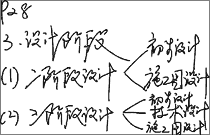 P28
3.设计阶段
(1) 二阶段设计 < 初步设计
施工图设计
(2) 3阶段设计 < 初步设计
技术设计
施工图设计